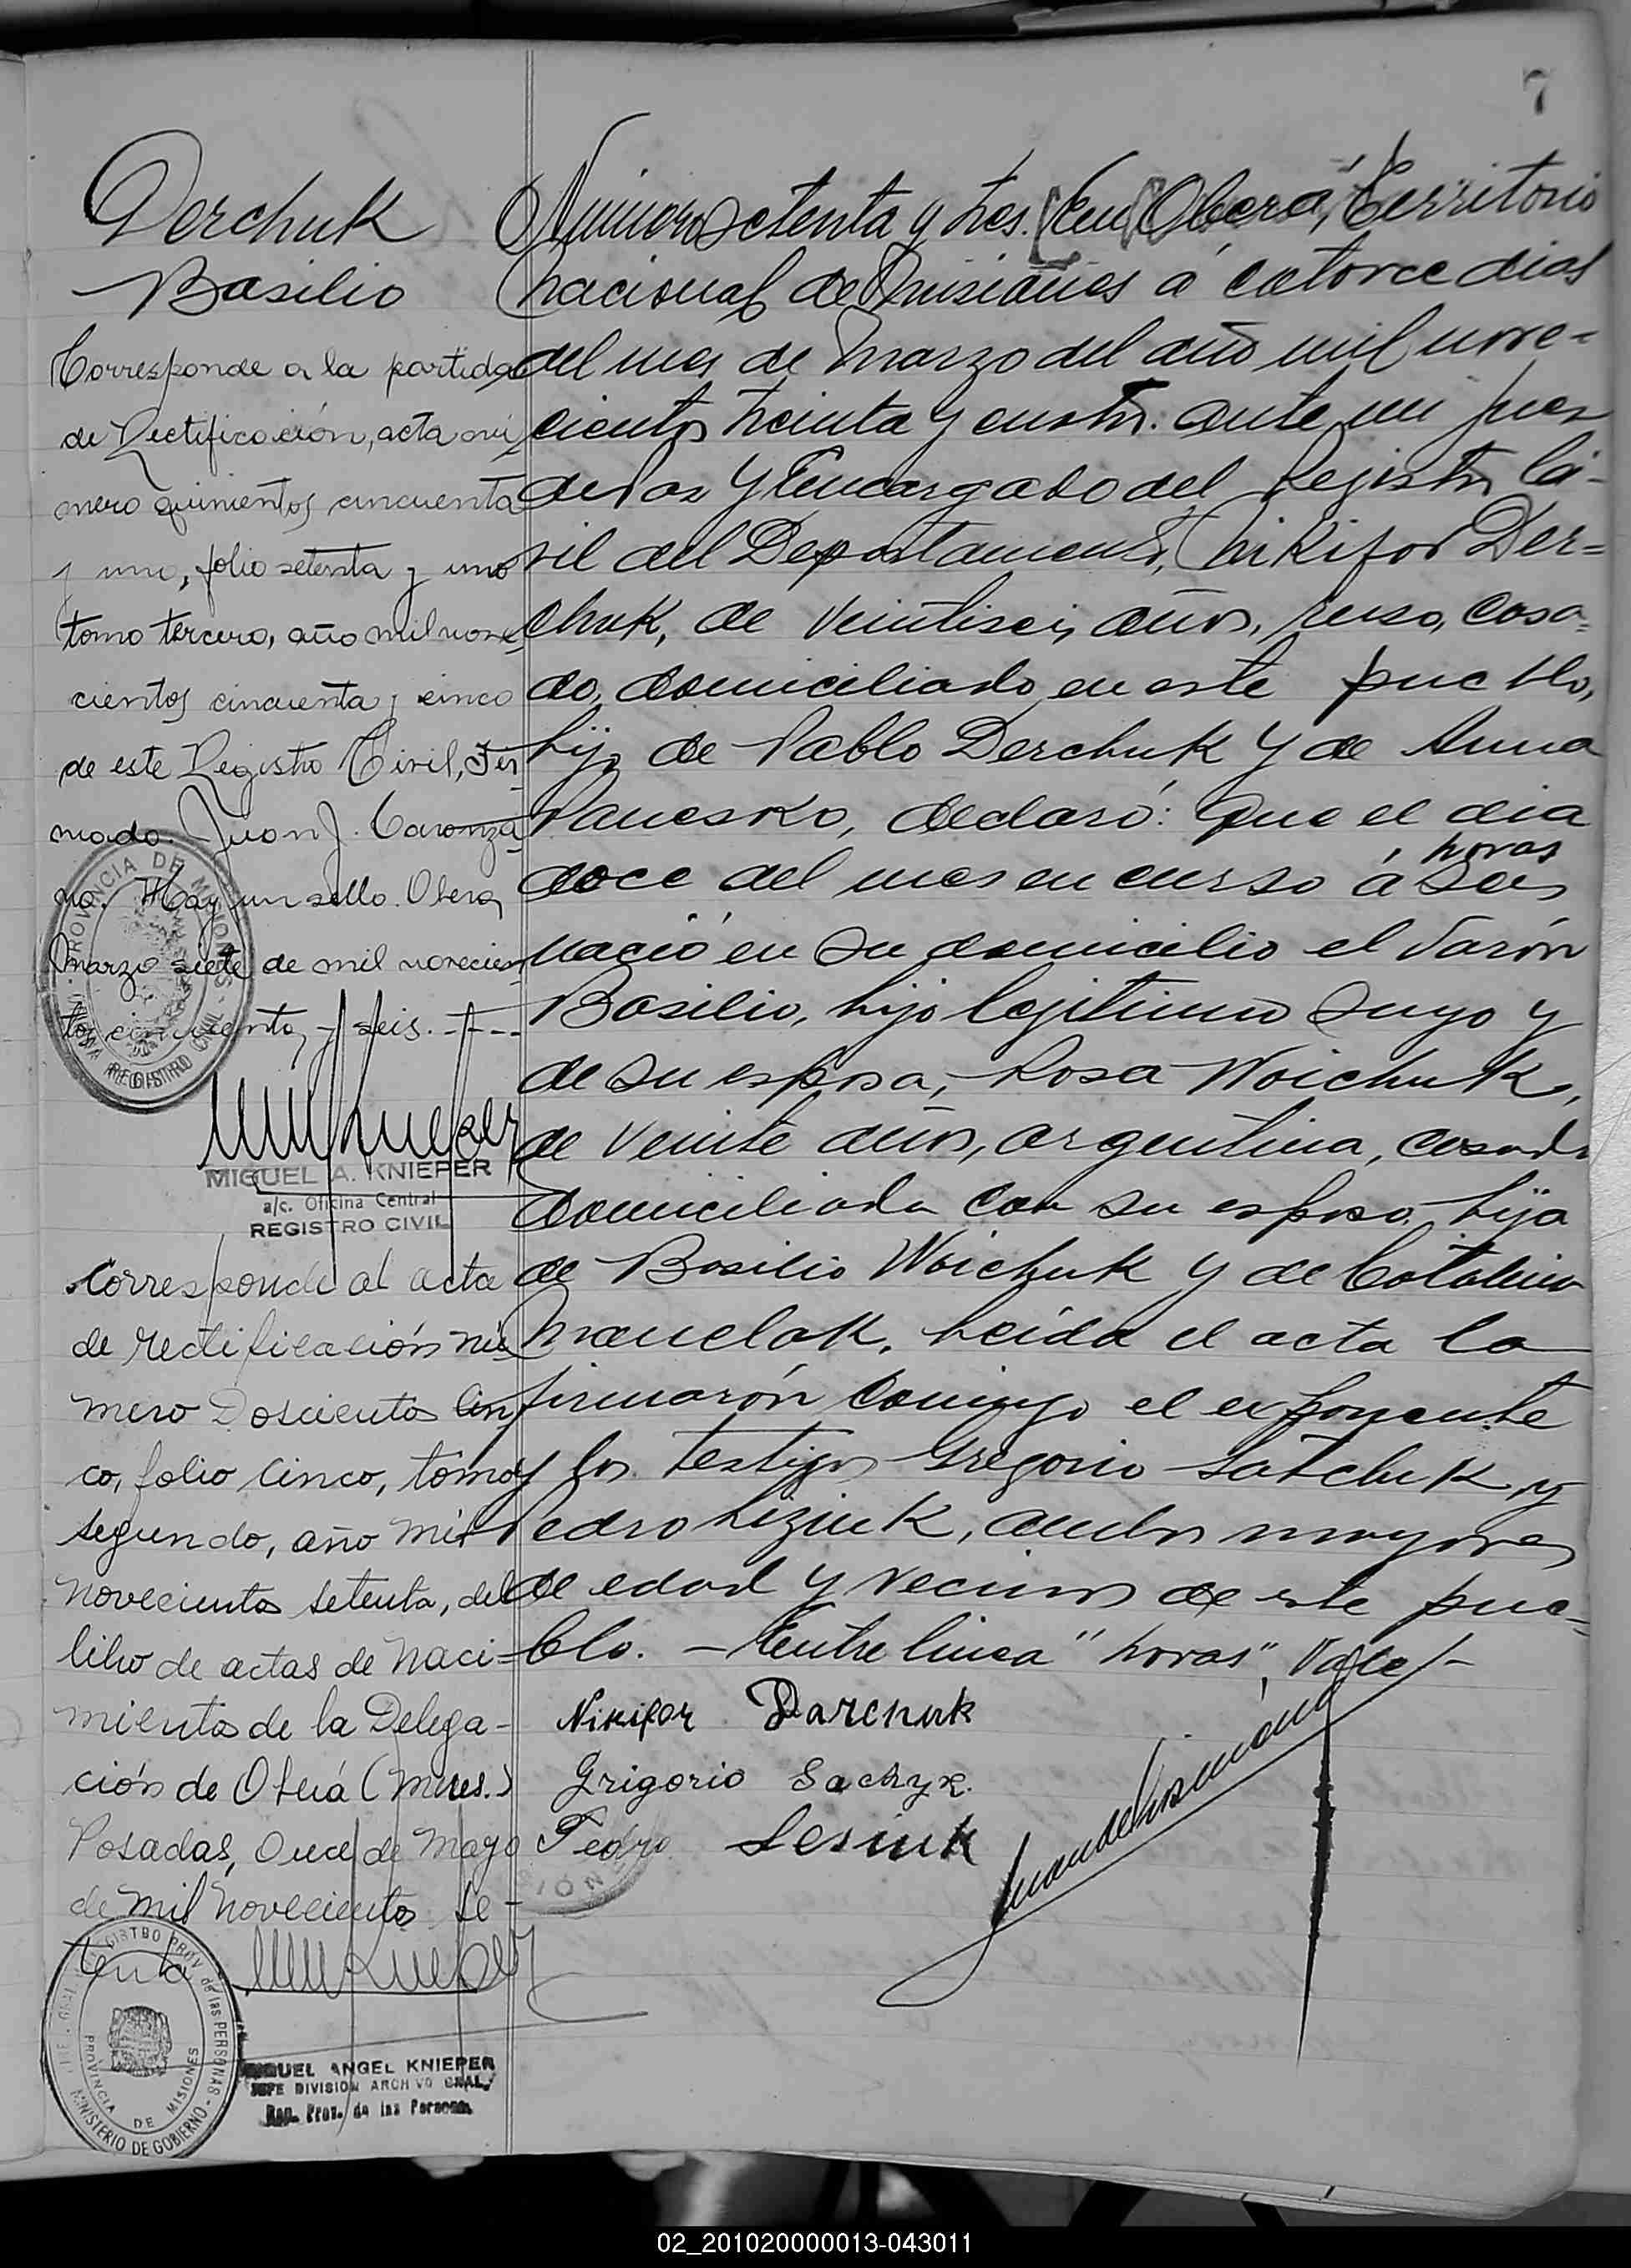 7
Derchuk
Basilio
Corresponde a la partida
de Rectificación, acta nú
mero quinientos cincuenta
y uno, folio setenta y uno
tomo tercero, año mil nove
cientos cincuenta y cinco
de este Registro Civil, Fir
mado. Juan J. Caronza
no. Hay un sello. Obera,
marzo siete de mil novecien
tos cincuenta y seis.
PROVINCIA DE MISIONES
REGISTRO CIVIL
MIGUEL A. KNIEPER
a/c. Oficina Central
REGISTRO CIVIL
Corresponde al acta
de rectificación nú
mero Doscientos Cin
co, folio cinco, tomo
segundo, año mil
novecientos setenta, del
libro de actas de naci-
mientos de la Delega-
ción de Oberá (Mnes.)
Posadas, Once de Mayo
de mil novecientos se-
tenta
REGISTRO PROV. de las PERSONAS
MINISTERIO DE GOBIERNO
PROVINCIA DE MISIONES
MIGUEL ANGEL KNIEPER
JEFE DIVISION ARCHIVO GRAL.
Reg. Prov. de las Personas
Número setenta y tres. En Oberá, Territorio
nacional de Misiones á catorce dias
del mes de Marzo del año mil nove-
cientos treinta y cuatro. ante mi juez
de Paz y Encargado del Registro Ci-
vil del Departamento, Nikifor Der=
chuk, de veintiseis años, ruso, casa=
do, domiciliado en este pueblo,
hijo de Pablo Derchuk y de Anna
Panesko, declaró: Que el dia
doce del mes en curso á seis horas
nació en su domicilio el varón
Basilio, hijo legitimo suyo y
de su esposa, Rosa Woichuk,
de veinte años, argentina, casada
domiciliada con su esposo, hija
de Basilio Woichuk y de Catalina
Manclak. Leída el acta la
firmarón conmigo el exponente
y los testigos Gregorio Satchuk y
Pedro Liziuk, ambos mayores
de edad y vecinos de este pue=
blo. - Entre linea "horas", Vale/-
Nikifor Darchuk
Grigorio Sachyk.
Pedro Lesiuk
02_201020000013-043011